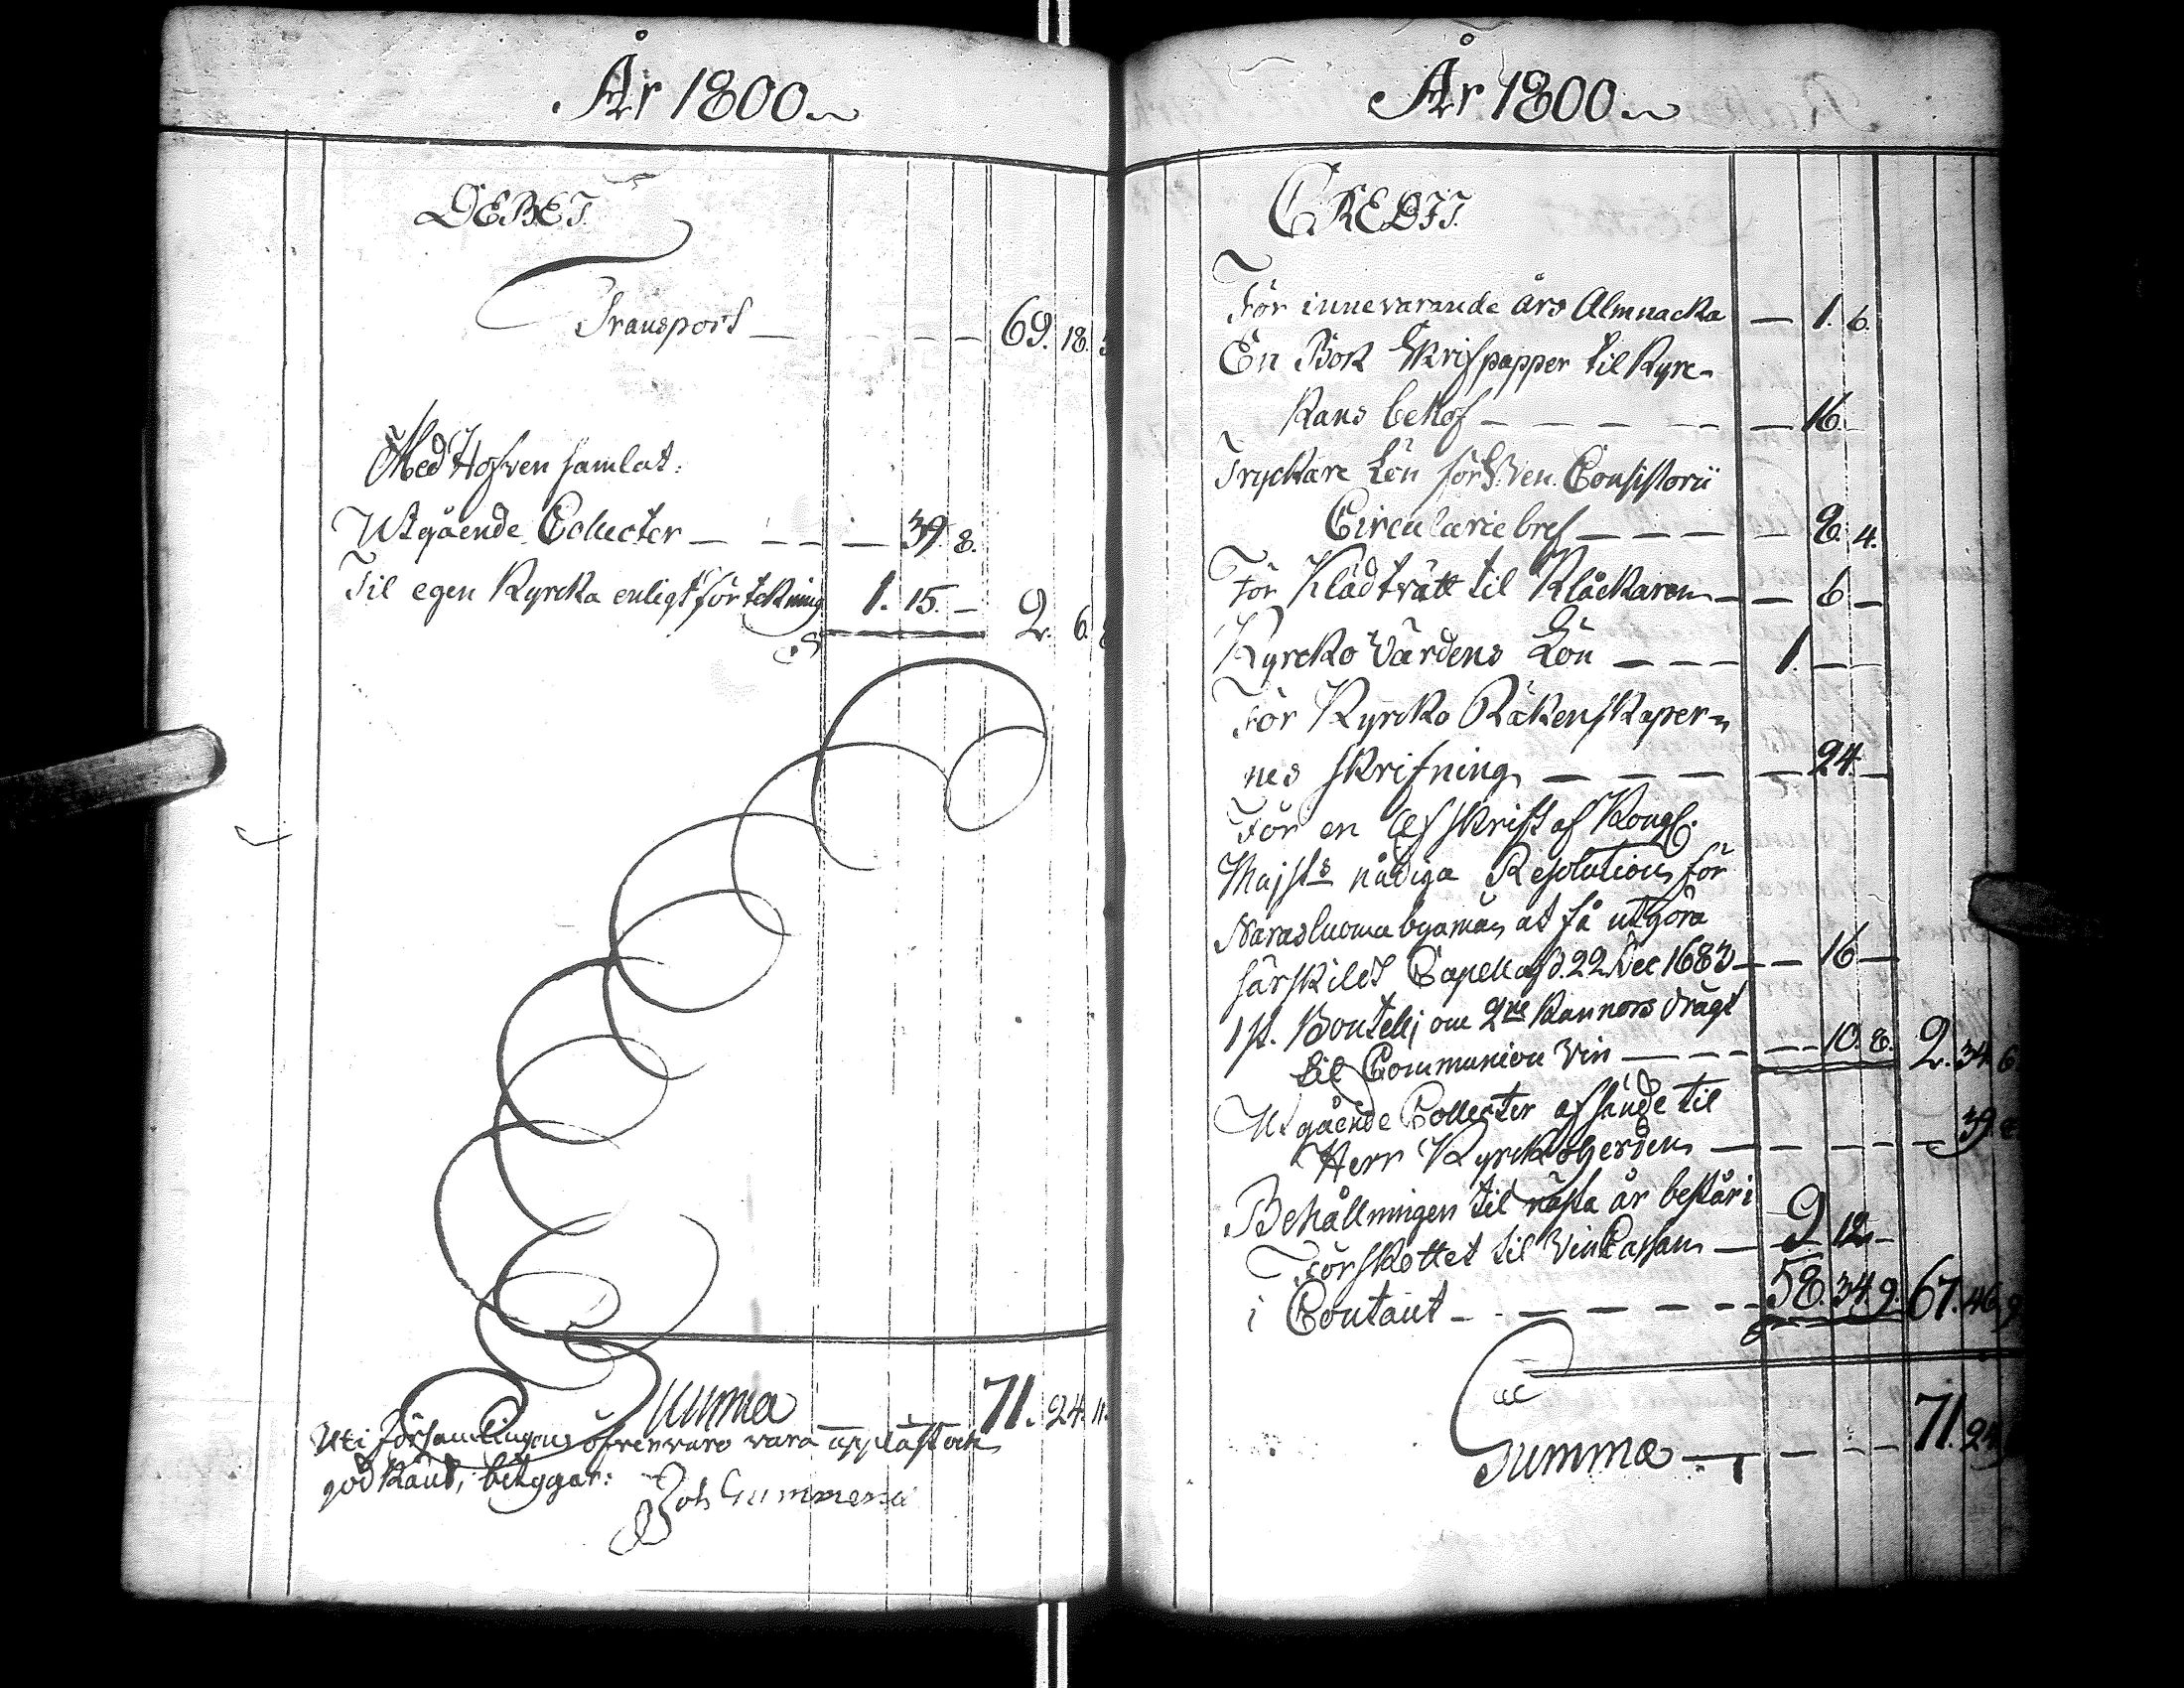 År 1800.
DEBET.
Transport — — — 69. 18.
Med Hofven samlat:
Utgående Collecter — — — 39. 8.
Til egen Kyrcka enligt förtekning 1. 15. — 2. 6.
Summa 71. 24. 11.
Uti Församlingens öfvervaro vara upläst och
godkänd, betygar:
Joh Gummerus
År 1800.
CREDIT.
För innevarande års Almnacka — 1. 6.
En Bok Skrifpapper til Kyrc-
kans behof — — — 16. —
Tryckare Lön för Ven. Consistorii
Circulairie bref — — — 8. 4.
För Klädtvätt til Klåckaren — — 6 —
Kyrcko Värdens Lön — — — 1. — —
För Kyrcko Räkenskaper-
nes skrifning — — — — 24. —
För en Afskrift af Kongl.
Majsts nådiga Resolution för
Narasluoma byamän at få utgöra
särskildt Capell af d. 22 Dec 1683 — — 16 —
1 st. Boutelj om 2ne Kannors drägt
til Communion Vin — — — — 10. 8. 2. 34. 6.
Utgående Collecter afsände til
Herr Kyrckoherden — — — — 39. 8.
Behållningen til nästa år består i
Förskottet til VinCassan — 9 12 —
i Contant — — — — 58. 34. 9. 67. 46. 9
Summa — — — 71. 24